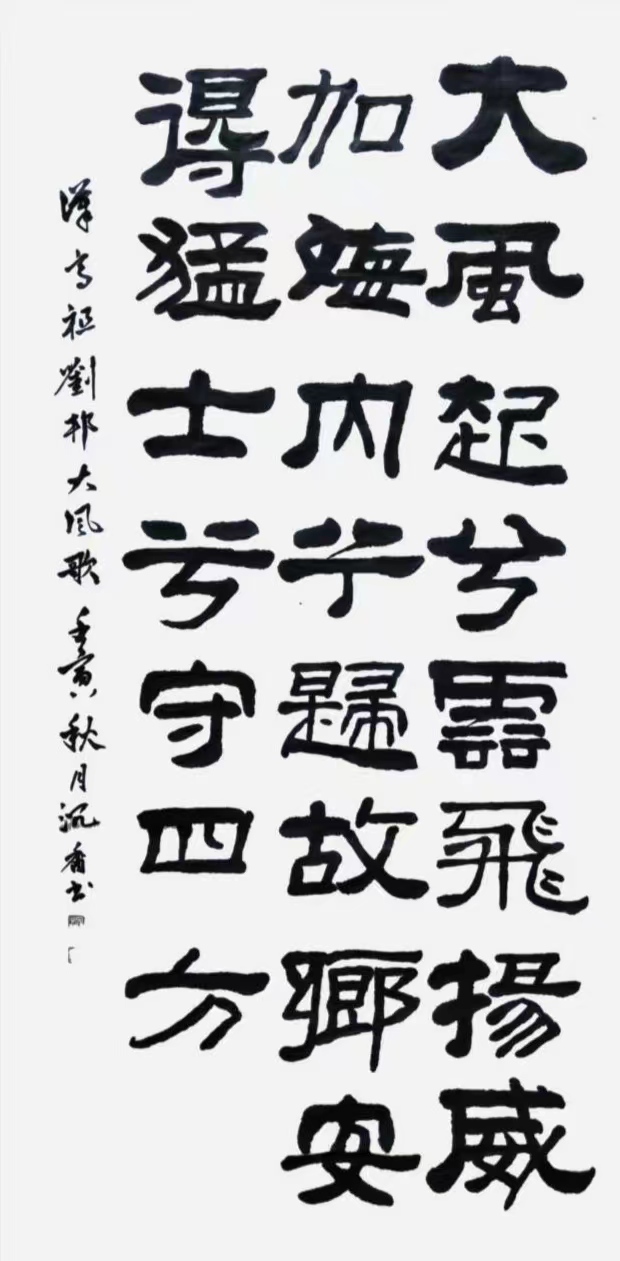 大風起兮雲飛揚威
加海内兮歸故鄉安
得猛士兮守四方
漢高祖劉邦大风歌 壬寅秋月沉香书